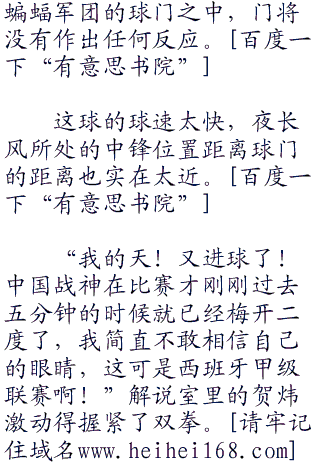 蝙蝠军团的球门之中，门将
没有作出任何反应。[百度一
下“有意思书院”]
这球的球速太快，夜长
风所处的中锋位置距离球门
的距离也实在太近。[百度一
下“有意思书院”]
“我的天！又进球了！
中国战神在比赛才刚刚过去
五分钟的时候就已经梅开二
度了，我简直不敢相信自己
的眼睛，这可是西班牙甲级
联赛啊！”解说室里的贺炜
激动得握紧了双拳。[请牢记
住域名www.heihei168.com]